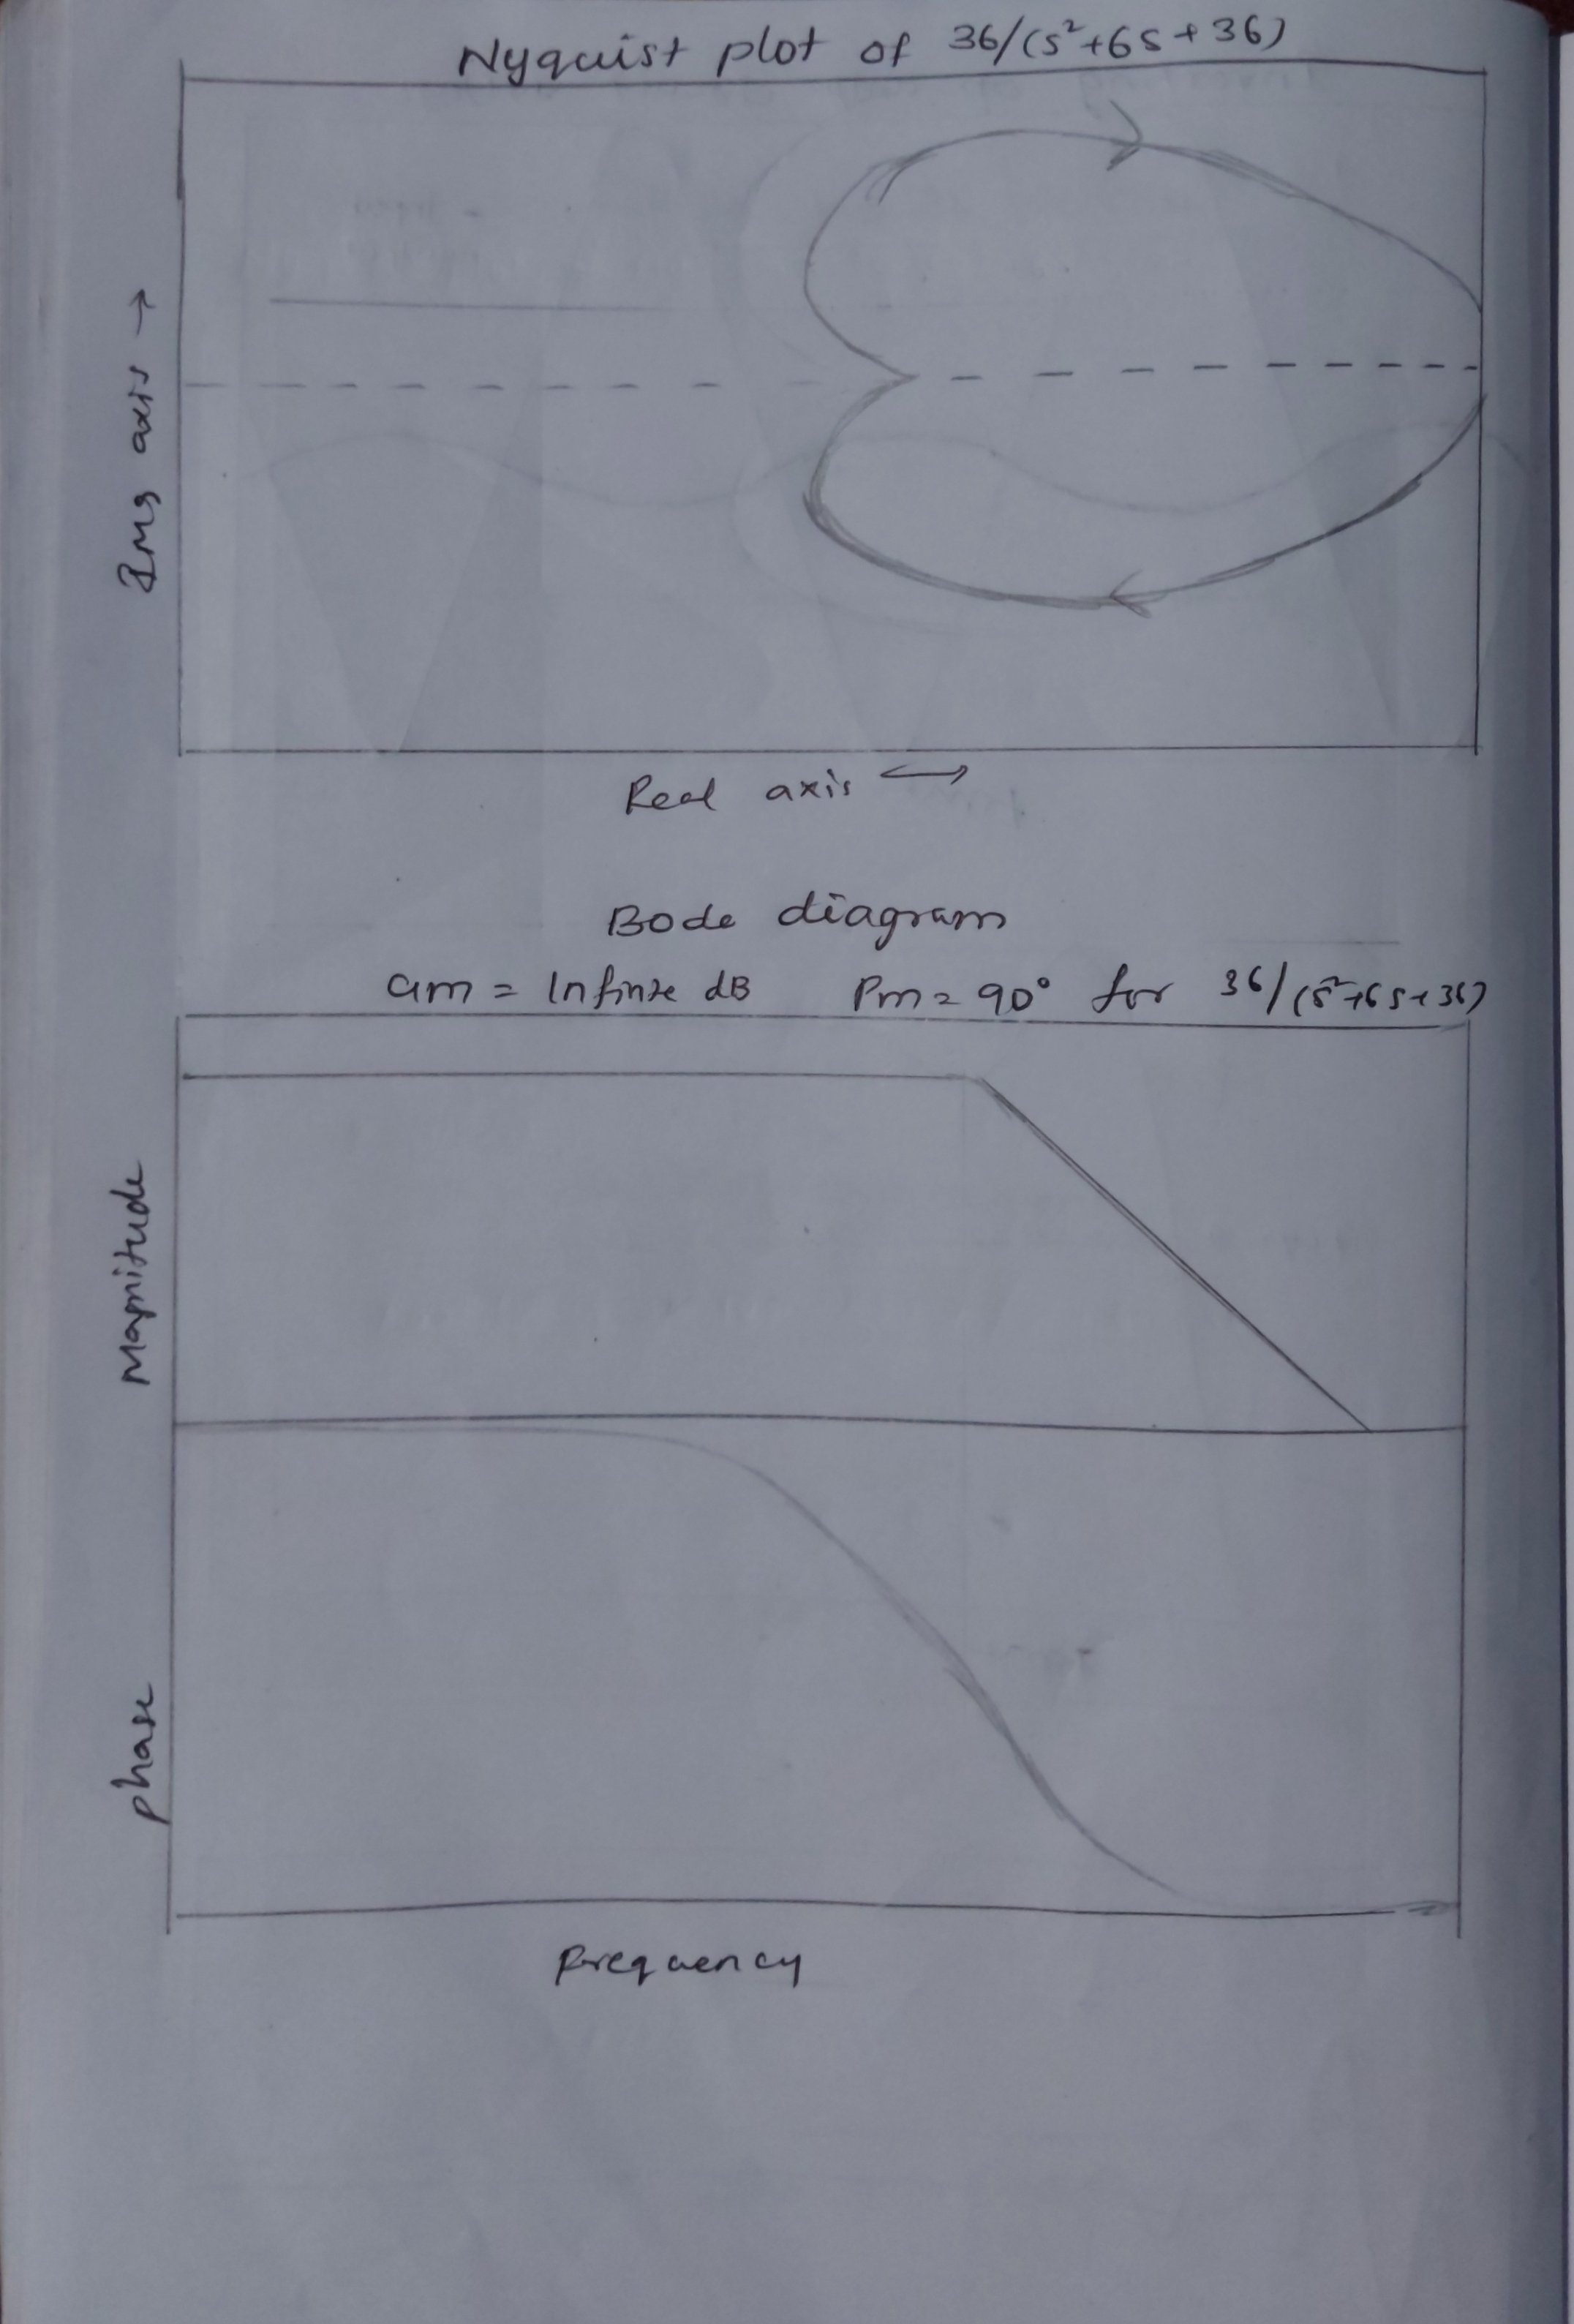 Nyquist plot of 36/(s²+6s+36)
Img axis →
Real axis →
Bode diagram
Gm = Infinite dB Pm = 90° for 36/(s²+6s+36)
Magnitude
phase
Frequency